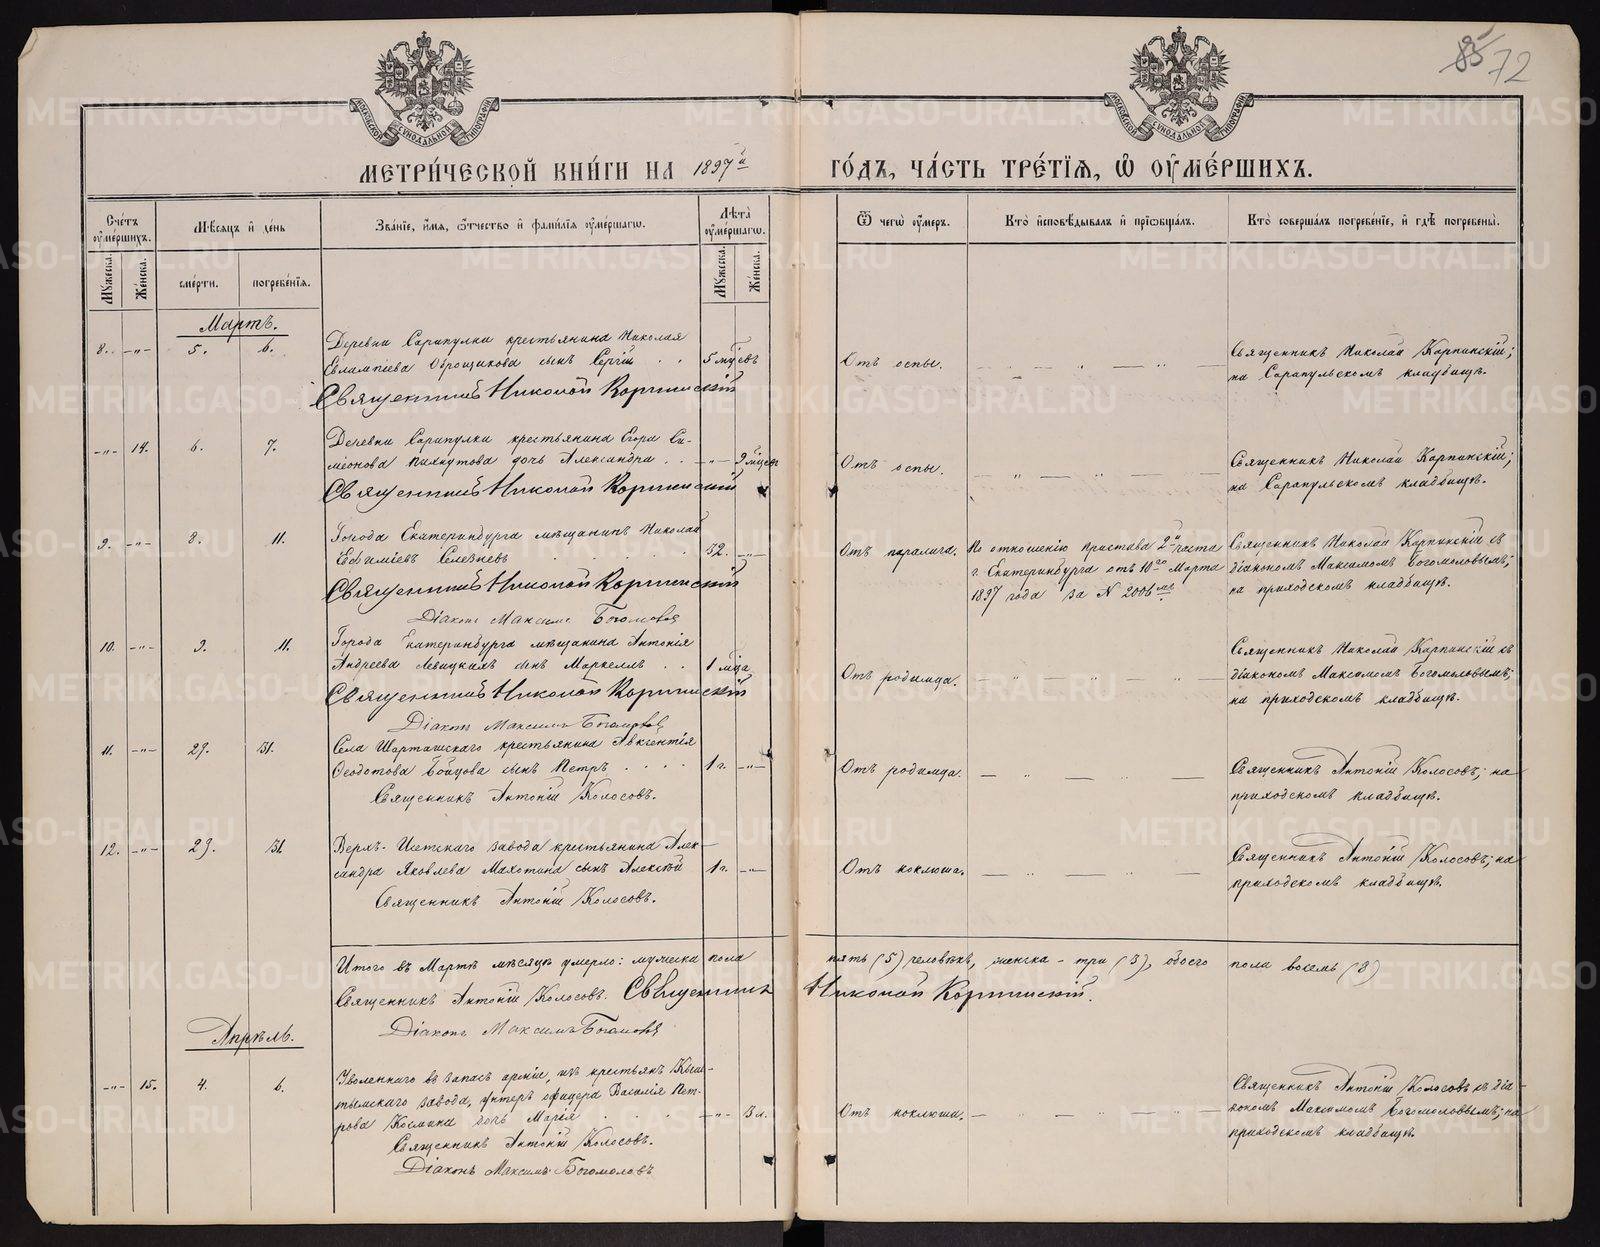 85 72
МОСКОВСКОЙ СѴНОДАЛЬНОЙ ТИПОГРАФІИ
МОСКОВСКОЙ СѴНОДАЛЬНОЙ ТИПОГРАФІИ
МЕТРИ́ЧЕСКОЙ КНИ́ГИ НА 1897й ГО́ДЪ, ЧА́СТЬ ТРЕ́ТІѦ, Ѡ ОУМЕ́РШИХЪ.
Сче́тъ оумершихъ.
Мѣ́сяцъ и де́нь
Зва́ніе, и́мя, о́тчество и фами́лія оуме́ршагѡ.
Лѣта̀ оуме́ршагѡ.
Ѿ чегѡ̀ оу́меръ.
Кто̀ исповѣ́дывалъ и пріѡбща́лъ.
Кто̀ соверша́лъ погребе́ніе, и гдѣ̀ погребены̀.
Мꙋжеска. Же́нска. сме́рти. погребе́нія. Мꙋжеска. Же́нска.
Мартъ.
8. -"- 5. 6.
Деревни Сарапулки крестьянина Николая
Евлампіева Оброщикова сынъ Сергій . . 5 мцевъ
Священникъ Николай Карпинскій
Отъ оспы.
Священникъ Николай Карпинскій;
на Сарапульскомъ кладбищѣ.
-"- 14. 6. 7.
Деревни Сарапулки крестьянина Егора Си-
меонова Пихтутова дочь Александра . . -"- 9 мцевъ
Священникъ Николай Карпинскій
Отъ оспы.
Священникъ Николай Карпинскій;
на Сарапульскомъ кладбищѣ.
9. -"- 8. 11.
Города Екатеринбурга мѣщанинъ Николай
Евфиміевъ Селезневъ 52. -"-
Священникъ Николай Карпинскій
Діаконъ Максимъ Богомоловъ
Отъ паралича.
По отношенію пристава 2й части
г. Екатеринбурга отъ 10го Марта
1897 года за N 2006мъ
Священникъ Николай Карпинскій съ
діакономъ Максимомъ Богомоловымъ;
на приходскомъ кладбищѣ.
10. -"- 9. 11.
Города Екатеринбурга мѣщанина Антонія
Андреева Левицкихъ сынъ Маркеллъ . . 1 мца
Священникъ Николай Карпинскій
Діаконъ Максимъ Богомоловъ
Отъ родимца.
Священникъ Николай Карпинскій съ
діакономъ Максимомъ Богомоловымъ;
на приходскомъ кладбищѣ.
11. -"- 29. 31.
Села Шарташскаго крестьянина Авксентія
Ѳеодотова Бойцова сынъ Петръ . . . . 1 г. -"-
Священникъ Антоній Колосовъ.
Отъ родимца.
Священникъ Антоній Колосовъ; на
приходскомъ кладбищѣ.
12. -"- 29. 31.
Верхъ-Исетскаго завода крестьянина Алек-
сандра Яковлева Махотина сынъ Алексѣй 1 г. -"-
Священникъ Антоній Колосовъ.
Отъ коклюша.
Священникъ Антоній Колосовъ; на
приходскомъ кладбищѣ.
Итого въ Мартѣ мѣсяцѣ умерло: мужеска пола пять (5) человѣкъ, женска - три (3), обоего пола восемь (8)
Священникъ Антоній Колосовъ. Священникъ Николай Карпинскій.
Діаконъ Максимъ Богомоловъ
Апрѣль.
-"- 15. 4. 6.
Уволеннаго въ запасъ арміи, изъ крестьянъ Кыш-
тымскаго завода, унтеръ офицера Василія Пет-
рова Космина дочь Марія . . . . -"- 3 л.
Священникъ Антоній Колосовъ.
Діаконъ Максимъ Богомоловъ
Отъ коклюша.
Священникъ Антоній Колосовъ съ діа-
кономъ Максимомъ Богомоловымъ; на
приходскомъ кладбищѣ.
METRIKI.GASO-URAL.RU